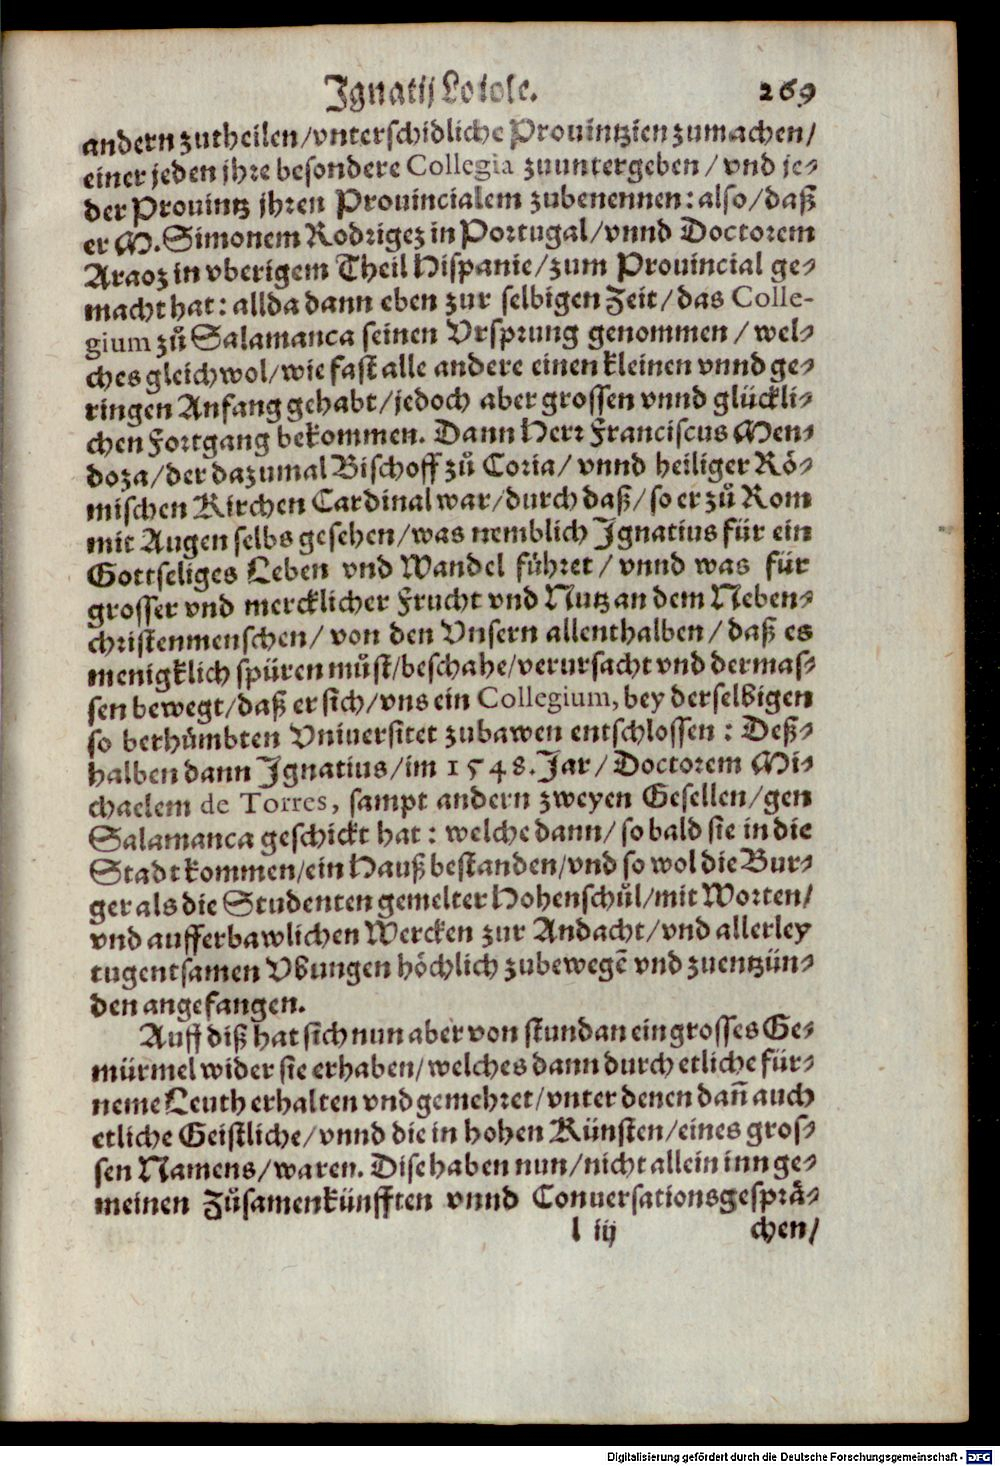 Ignatij Loiole. 269
andern zutheilen/vnterschidliche Prouintzien zumachen/
einer jeden jhre besondere Collegia zuuntergeben/vnd je-
der Prouintz jhren Prouincialem zubenennen: also/daß
er M. Simonem Rodrigez in Portugal/vnnd Doctorem
Araoz in vberigem Theil Hispanie/zum Prouincial ge-
macht hat: allda dann eben zur selbigen Zeit/das Colle-
gium zů Salamanca seinen Vrsprung genommen/wel-
ches gleichwol/wie fast alle andere einen kleinen vnnd ge-
ringen Anfang gehabt/jedoch aber grossen vnnd glückli-
chen Fortgang bekommen. Dann Herr Franciscus Men-
doza/der dazumal Bischoff zů Coria/vnnd heiliger Rö-
mischen Kirchen Cardinal war/durch daß/so er zů Rom
mit Augen selbs gesehen/was nemblich Ignatius für ein
Gottseliges Leben vnd Wandel führet/vnnd was für
grosser vnd mercklicher Frucht vnd Nutz an dem Neben-
christenmenschen/von den Vnsern allenthalben/daß es
menigklich spüren můst/beschahe/verursacht vnd dermas-
sen bewegt/daß er sich/vns ein Collegium, bey derselbigen
so berhůmbten Vniuersitet zubawen entschlossen: Deß-
halben dann Ignatius/im 1548. Jar/Doctorem Mi-
chaelem de Torres, sampt andern zweyen Gesellen/gen
Salamanca geschickt hat: welche dann/so bald sie in die
Stadt kommen/ein Hauß bestanden/vnd so wol die Bur-
ger als die Studenten gemelter Hohenschůl/mit Worten/
vnd aufferbawlichen Wercken zur Andacht/vnd allerley
tugentsamen Vbungen höchlich zubewegē vnd zuentzün-
den angefangen.
Auff diß hat sich nun aber von stundan ein grosses Ge-
mürmel wider sie erhaben/welches dann durch etliche für-
neme Leuth erhalten vnd gemehret/vnter denen dan̄ auch
etliche Geistliche/vnnd die in hohen Künsten/eines gros-
sen Namens/waren. Dise haben nun/nicht allein inn ge-
meinen Zůsamenkünfften vnnd Conuersationsgesprä-
l iij chen/
Digitalisierung gefördert durch die Deutsche Forschungsgemeinschaft - DFG